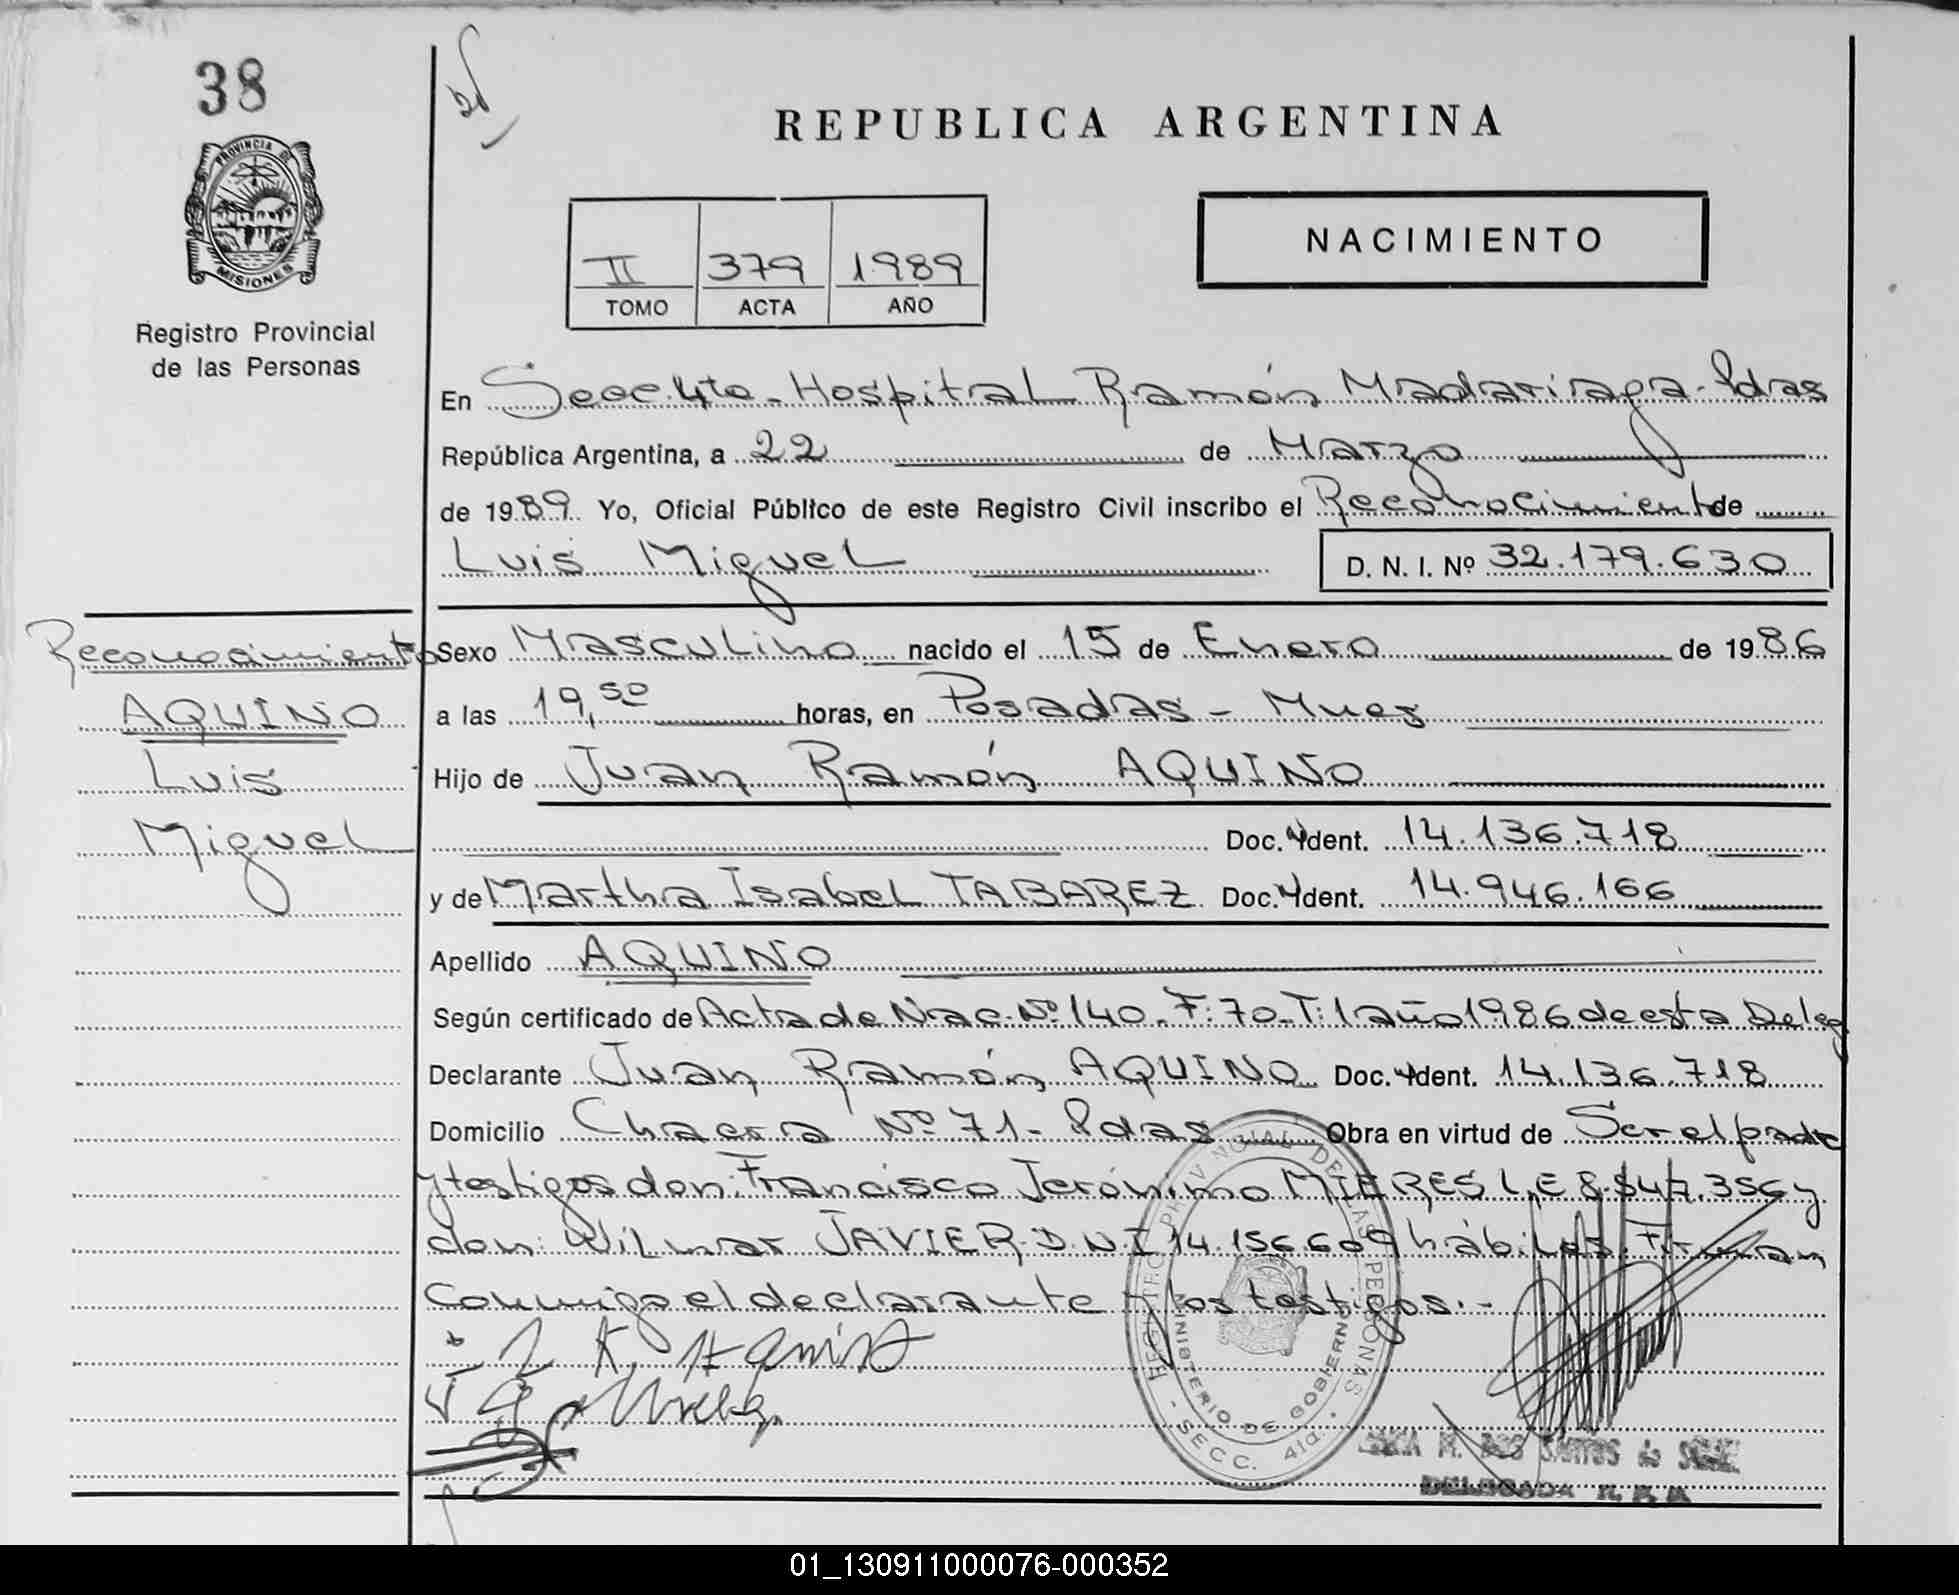 38
REPUBLICA ARGENTINA
PROVINCIA DE
MISIONES
Registro Provincial
de las Personas
II 379 1989
TOMO ACTA AÑO
NACIMIENTO
En Secc. 4ta - Hospital Ramón Madariaga - Pdas
República Argentina, a 22 de Marzo
de 1989 Yo, Oficial Público de este Registro Civil inscribo el Reconocimiento de
Luis Miguel D. N. I. Nº 32.179.630
Reconocimiento
AQUINO
Luis
Miguel
Sexo Masculino nacido el 15 de Enero de 1986
a las 19,50 horas, en Posadas - Mnes
Hijo de Juan Ramón AQUINO
Doc. Ydent. 14.136.718
y de Martha Isabel TABAREZ Doc. Ydent. 14.946.166
Apellido AQUINO
Según certificado de Acta de Nac. Nº 140 - F: 70 - T: 1 año 1986 de esta Deleg
Declarante Juan Ramón AQUINO Doc. Ydent. 14.136.718
Domicilio Chacra Nº 71 - Pdas Obra en virtud de Ser el padre
y testigos don: Francisco Jerónimo MIERES L.E 8. 356 y
don: Wilmar JAVIER D.N.I 14.156.609 hábiles. Firman
conmigo el declarante y los testigos. -
REGISTRO PROVINCIAL DE LAS PERSONAS
MINISTERIO DE GOBIERNO
- SECC. 4ta. -
M. DOS SANTOS de
DELEGADA R. P. P.
01_130911000076-000352